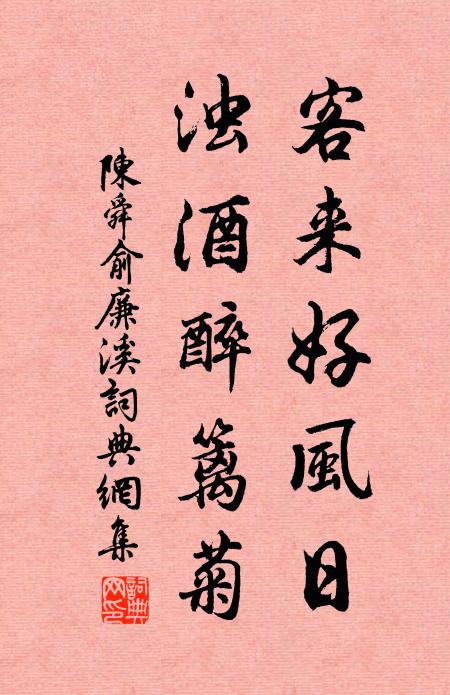 客来好風日
浊酒醉籬菊
陳舜俞廉溪詞典網集
詞典网印